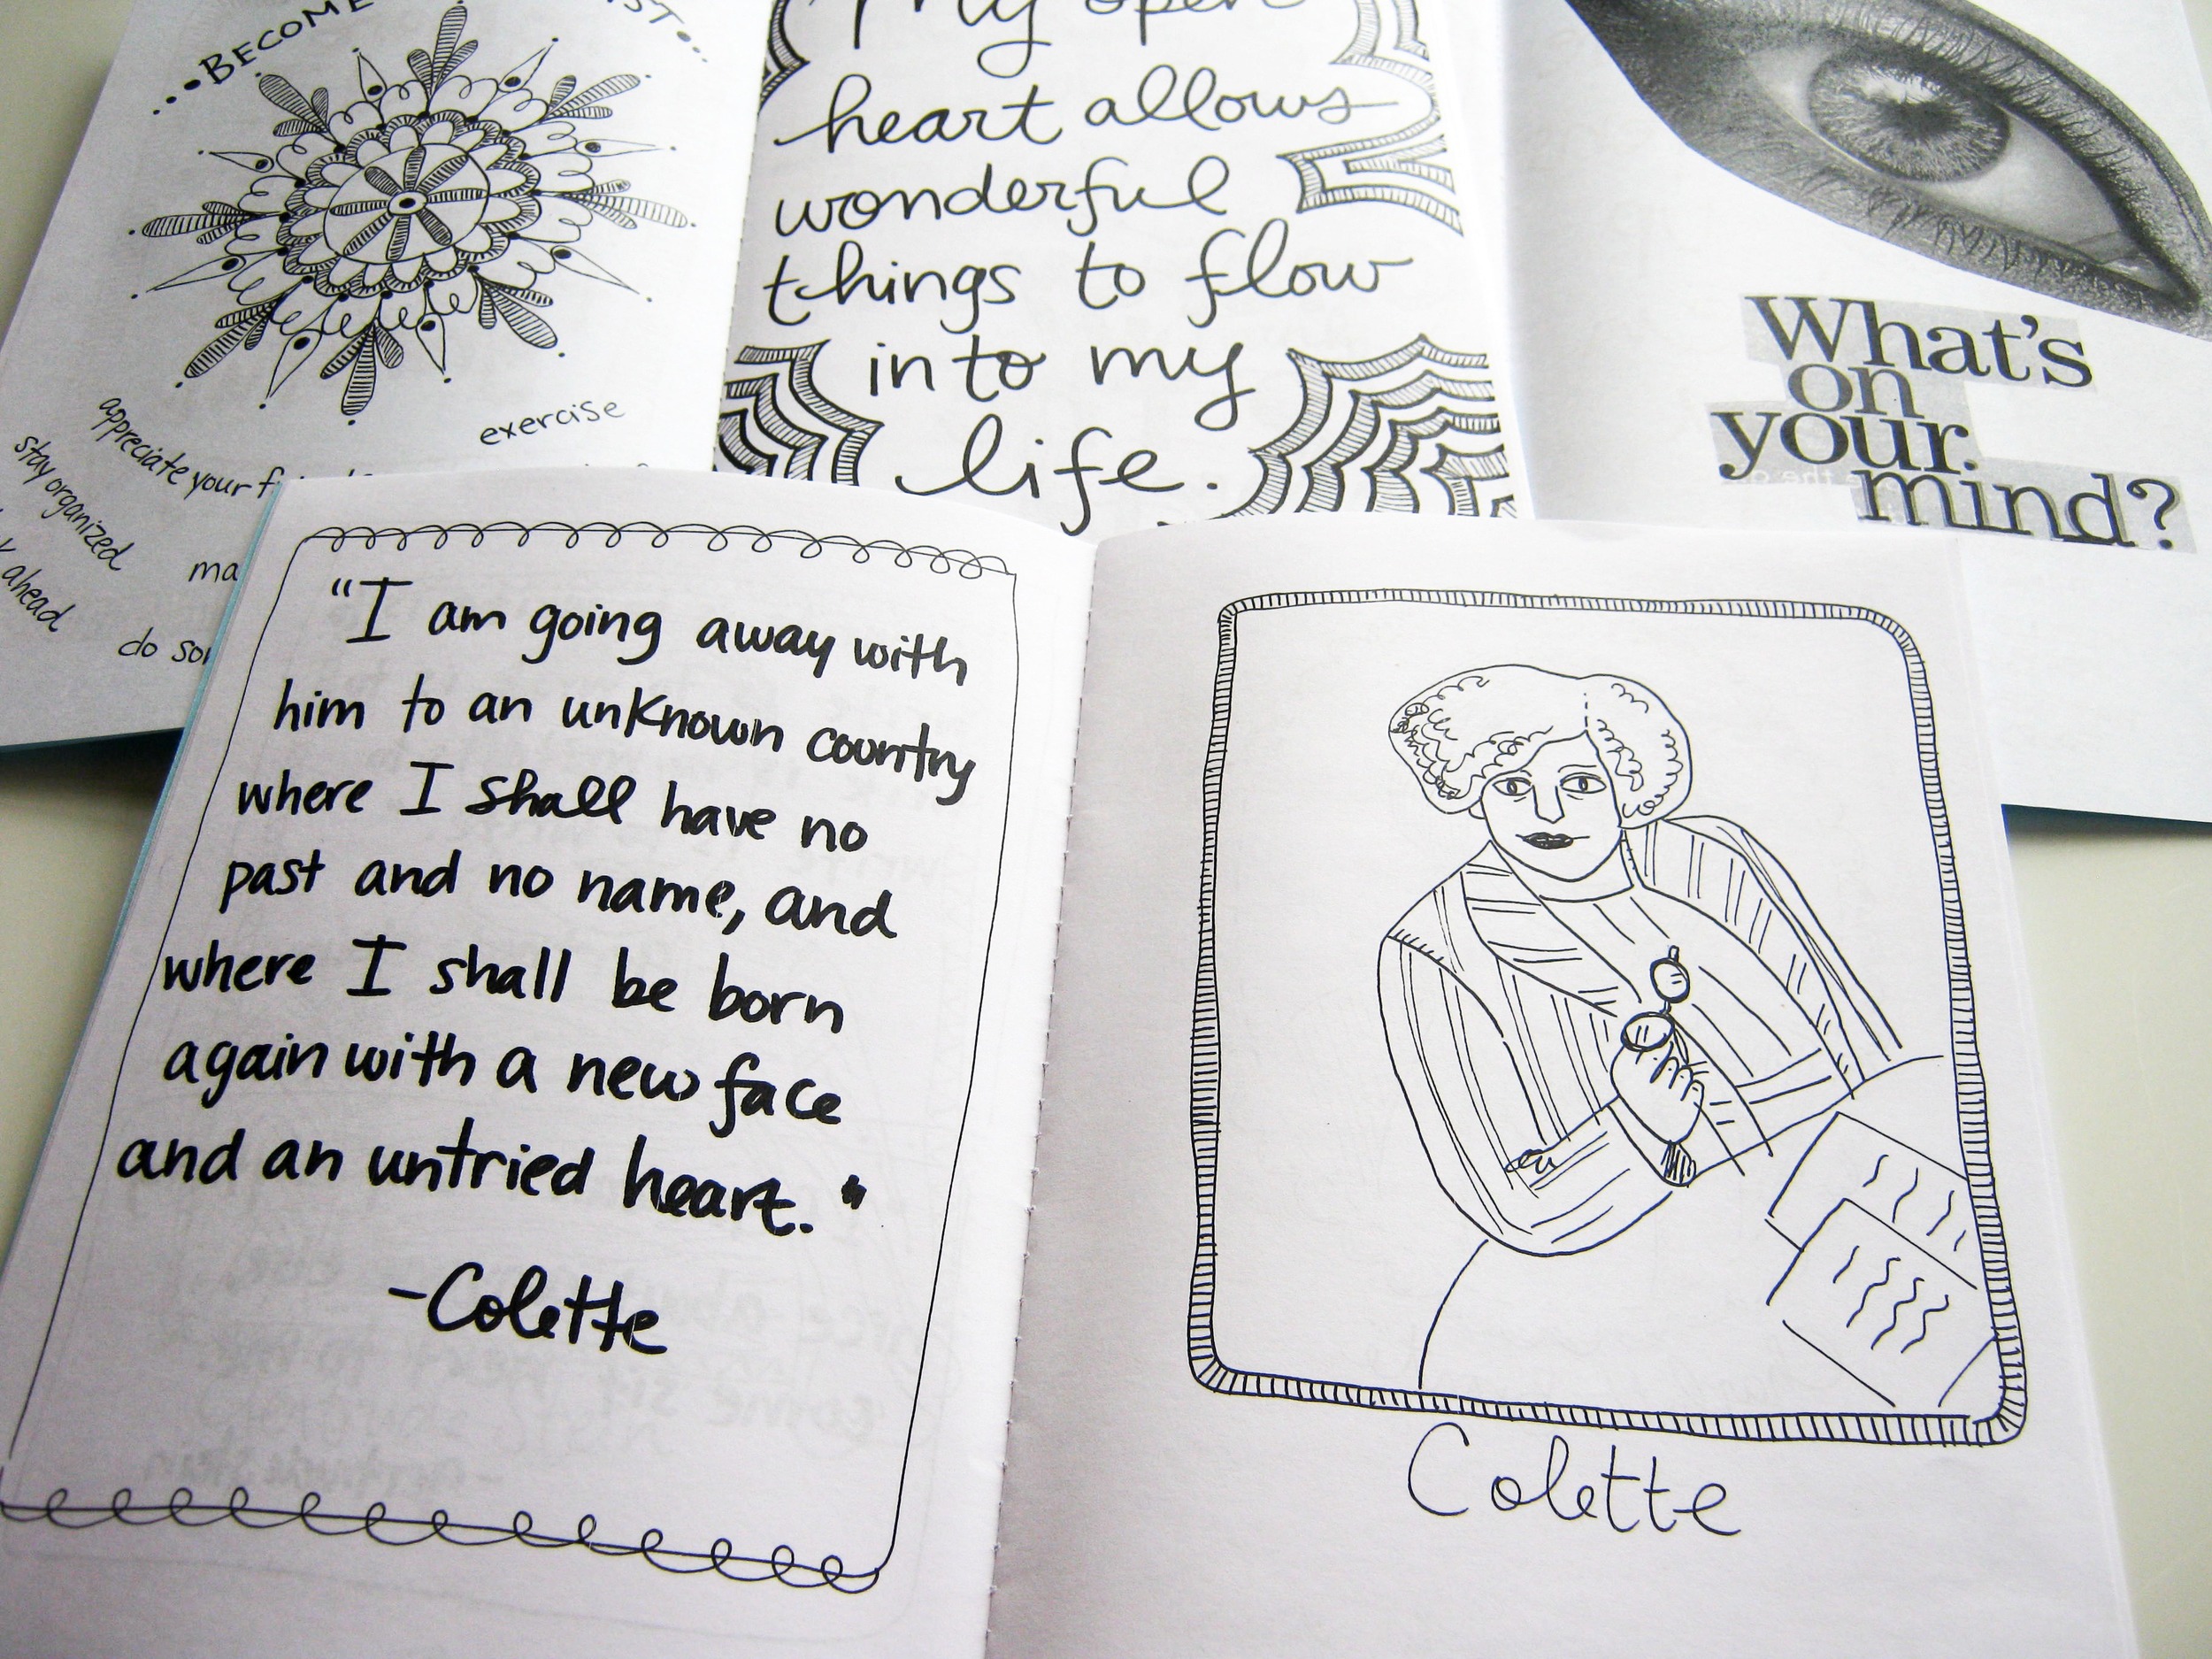 BECOME
My open
heart allows
wonderful
things to flow
into my
life.
What's
on
your
mind?
exercise
appreciate your
stay organized
ahead
do
"I am going away with
him to an unknown country
where I shall have no
past and no name, and
where I shall be born
again with a new face
and an untried heart."
-Colette
Colette